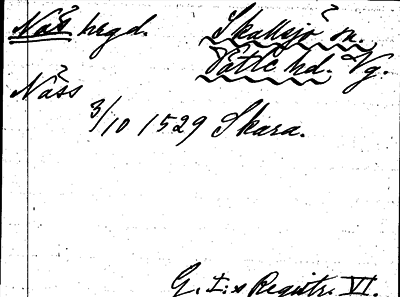 Näs hrgd. Skallsjö sn.
Vättle hd. Vg.
Näss
3/10 1529 Skara.
G. I:s Registr. VI.